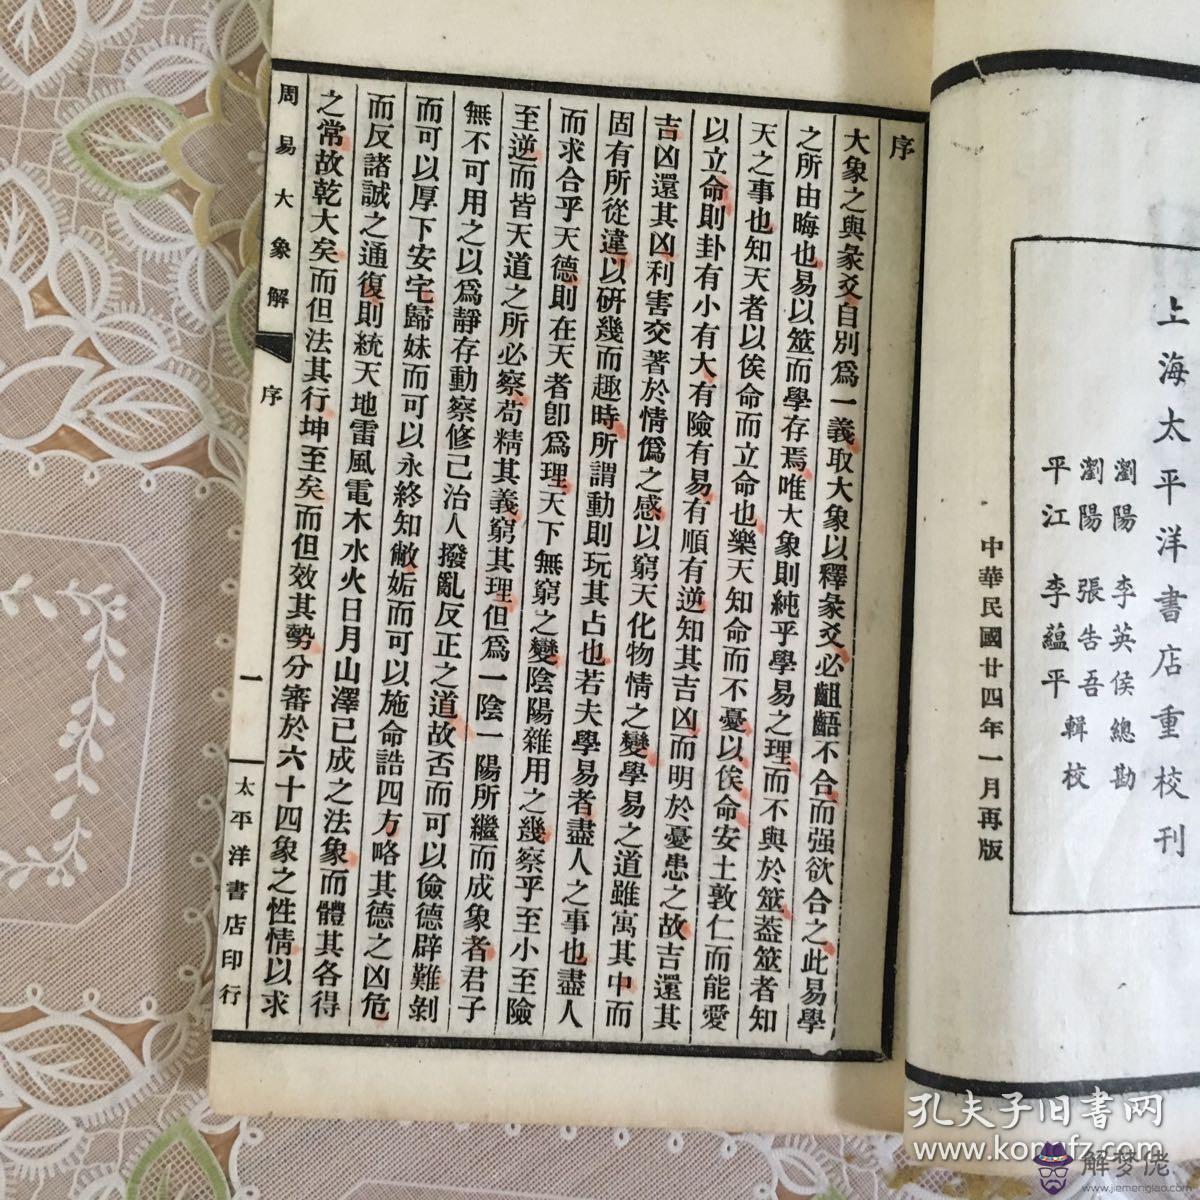 上海太平洋書店重校刊
瀏陽 李英侯總勘
瀏陽 張告吾
平江 李蘊平
輯校
中華民國廿四年一月再版
序
大象之與彖爻自別爲一義取大象以釋彖爻必齟齬不合而强欲合之此易學
之所由晦也易以筮而學存焉唯大象則純乎學易之理而不與於筮葢筮者知
天之事也知天者以俟命而立命也樂天知命而不憂以俟命安土敦仁而能愛
以立命則卦有小有大有險有易有順有逆知其吉凶而明於憂患之故吉還其
吉凶還其凶利害交著於情僞之感以窮天化物情之變學易之道雖寓其中而
固有所從違以硏幾而趣時所謂動則玩其占也若夫學易者盡人之事也盡人
而求合乎天德則在天者卽爲理天下無窮之變陰陽雜用之幾察乎至小至險
至逆而皆天道之所必察苟精其義窮其理但爲一陰一陽所繼而成象者君子
無不可用之以爲靜存動察修己治人撥亂反正之道故否而可以儉德辟難剝
而可以厚下安宅歸妹而可以永終知敝姤而可以施命誥四方略其德之凶危
而反諸誠之通復則統天地雷風電木水火日月山澤已成之法象而體其各得
之常故乾大矣而但法其行坤至矣而但效其勢分審於六十四象之性情以求
周易大象解
序
一
太平洋書店印行
孔夫子旧書网
www.kongfz.com
解梦佬
www.jiemenglao.com